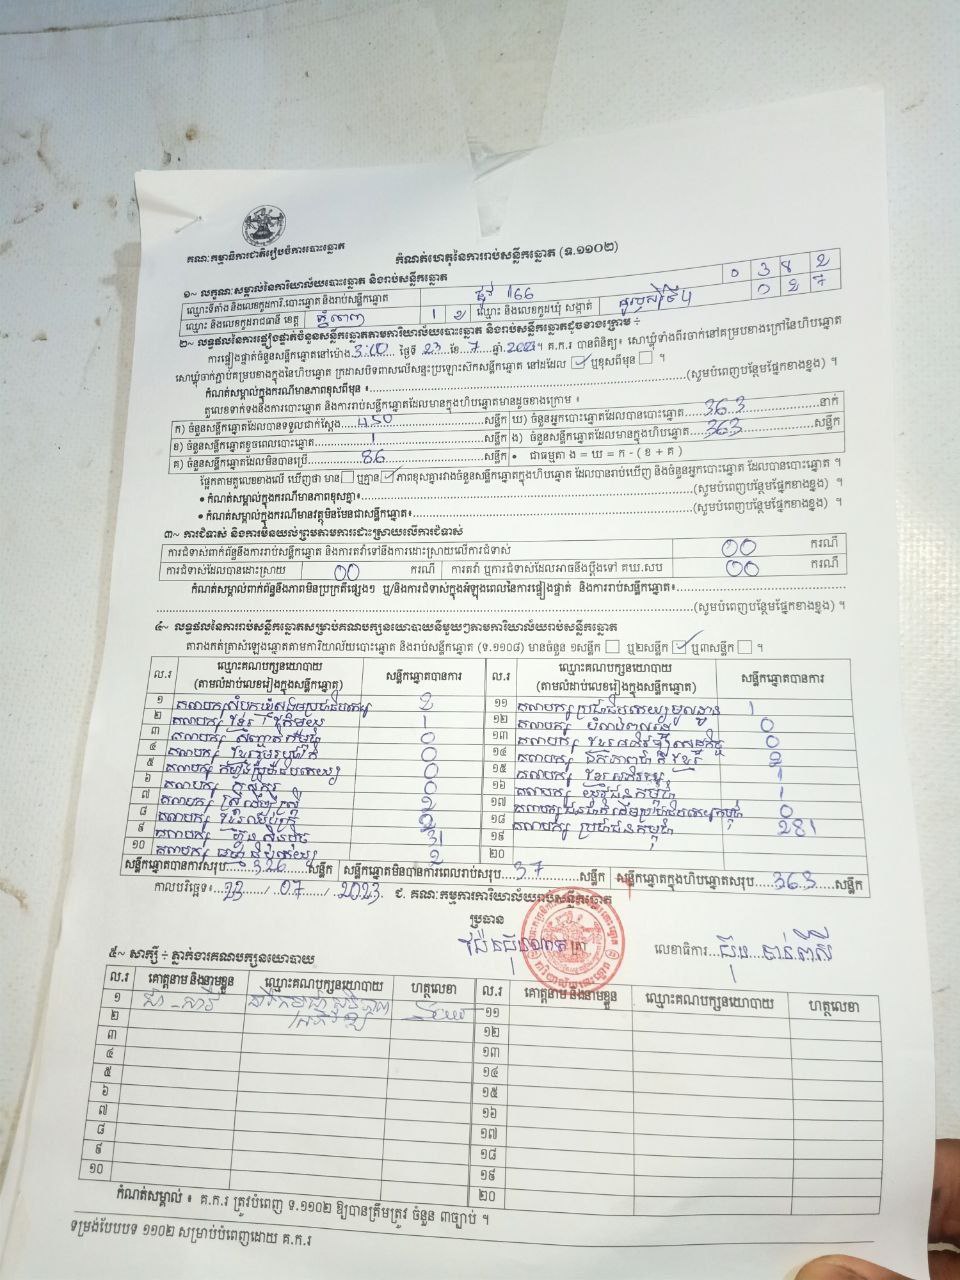 គណៈកម្មាធិការជាតិរៀបចំការបោះឆ្នោត
កំណត់ហេតុនៃការរាប់សន្លឹកឆ្នោត (ទ.១១០២)
១~ លក្ខណៈសម្គាល់នៃការិយាល័យបោះឆ្នោត និងរាប់សន្លឹកឆ្នោត
ឈ្មោះទីតាំង និងលេខកូដការិ.បោះឆ្នោតនិងរាប់សន្លឹកឆ្នោត ផ្លូវ 166 0 3 8 2
ឈ្មោះ និងលេខកូដរាជធានី ខេត្ត ភ្នំពេញ 1 2 ឈ្មោះ និងលេខកូដឃុំ សង្កាត់ 0 2 7
២~ លទ្ធផលនៃការផ្ទៀងផ្ទាត់ចំនួនសន្លឹកឆ្នោតតាមការិយាល័យបោះឆ្នោត និងរាប់សន្លឹកឆ្នោតដូចខាងក្រោម ÷
ការផ្ទៀងផ្ទាត់ចំនួនសន្លឹកឆ្នោតនៅម៉ោង 3:10 ថ្ងៃទី 23 ខែ 7 ឆ្នាំ 2023។ គ.ក.រ បានពិនិត្យ៖ សោឃ្មុំទាំងពីរចាក់នៅគម្របខាងក្រៅនៃហិបឆ្នោត
សោឃ្មុំចាក់ភ្ជាប់គម្របខាងក្នុងនៃហិបឆ្នោត ក្រដាសបិទពាសលើសន្ទះប្រឡោះស៊កសន្លឹកឆ្នោត នៅដដែល ✓ ឬខុសពីមុន ។
កំណត់សម្គាល់ក្នុងករណីមានភាពខុសពីមុន ៖ (សូមបំពេញបន្ថែមផ្នែកខាងខ្នង) ។
តួលេខទាក់ទងនឹងការបោះឆ្នោត និងការរាប់សន្លឹកឆ្នោតដែលមានក្នុងហិបឆ្នោតមានដូចខាងក្រោម ៖
ក) ចំនួនសន្លឹកឆ្នោតដែលបានទទួលជាក់ស្តែង 450 សន្លឹក ឃ) ចំនួនអ្នកបោះឆ្នោតដែលបានបោះឆ្នោត 363 នាក់
ខ) ចំនួនសន្លឹកឆ្នោតខូចពេលបោះឆ្នោត 1 សន្លឹក ង) ចំនួនសន្លឹកឆ្នោតដែលមានក្នុងហិបឆ្នោត 363 សន្លឹក
គ) ចំនួនសន្លឹកឆ្នោតដែលមិនបានប្រើ 86 សន្លឹក • ជាធម្មតា ង = ឃ = ក - ( ខ + គ )
ផ្អែកតាមតួលេខខាងលើ ឃើញថា មាន ឬគ្មាន ✓ ភាពខុសគ្នារវាងចំនួនសន្លឹកឆ្នោតក្នុងហិបឆ្នោត ដែលបានរាប់ឃើញ និងចំនួនអ្នកបោះឆ្នោត ដែលបានបោះឆ្នោត ។
• កំណត់សម្គាល់ក្នុងករណីមានភាពខុសគ្នា៖ (សូមបំពេញបន្ថែមផ្នែកខាងខ្នង) ។
• កំណត់សម្គាល់ក្នុងករណីមានវត្ថុមិនមែនជាសន្លឹកឆ្នោត៖ (សូមបំពេញបន្ថែមផ្នែកខាងខ្នង) ។
៣~ ការជំទាស់ និងការមិនយល់ព្រមតាមការដោះស្រាយលើការជំទាស់
ការជំទាស់ពាក់ព័ន្ធនឹងការរាប់សន្លឹកឆ្នោត និងការតវ៉ាទៅនឹងការដោះស្រាយលើការជំទាស់ 00 ករណី
ការជំទាស់ដែលបានដោះស្រាយ 00 ករណី ការតវ៉ា ឬការជំទាស់ដែលអាចនឹងប្តឹងទៅ គឃ.សប 00 ករណី
កំណត់សម្គាល់ពាក់ព័ន្ធនឹងភាពមិនប្រក្រតីផ្សេងៗ ឬ/និងការជំទាស់ក្នុងអំឡុងពេលនៃការផ្ទៀងផ្ទាត់ និងការរាប់សន្លឹកឆ្នោត៖
(សូមបំពេញបន្ថែមផ្នែកខាងខ្នង) ។
៤~ លទ្ធផលនៃការរាប់សន្លឹកឆ្នោតសម្រាប់គណបក្សនយោបាយនីមួយៗតាមការិយាល័យរាប់សន្លឹកឆ្នោត
តារាងកត់ត្រាសំឡេងឆ្នោតតាមការិយាល័យបោះឆ្នោត និងរាប់សន្លឹកឆ្នោត (ទ.១១០៨) មានចំនួន ១សន្លឹក ឬ២សន្លឹក ✓ ឬ៣សន្លឹក ។
ល.រ ឈ្មោះគណបក្សនយោបាយ (តាមលំដាប់លេខរៀងក្នុងសន្លឹកឆ្នោត) សន្លឹកឆ្នោតបានការ ល.រ ឈ្មោះគណបក្សនយោបាយ (តាមលំដាប់លេខរៀងក្នុងសន្លឹកឆ្នោត) សន្លឹកឆ្នោតបានការ
១ គណបក្ស 2 ១១ គណបក្សប្រជាធិបតេយ្យមូលដ្ឋាន 1
២ គណបក្ស ខ្មែរ 1 ១២ គណបក្ស 0
៣ គណបក្ស 0 ១៣ គណបក្ស ខ្មែរអភិវឌ្ឍន៍សេដ្ឋកិច្ច 0
៤ គណបក្ស ខ្មែររួបរួមជាតិ 0 ១៤ គណបក្ស ឯកភាពជាតិខ្មែរ 2
៥ គណបក្ស កម្លាំងប្រជាធិបតេយ្យ 0 ១៥ គណបក្ស ខ្មែរអភិរក្ស 1
៦ គណបក្ស 0 ១៦ គណបក្ស យុវជនកម្ពុជា 1
៧ គណបក្ស ស្ត្រីដើម្បីស្ត្រី 2 ១៧ គណបក្ស 0
៨ គណបក្ស 2 ១៨ គណបក្ស ប្រជាជនកម្ពុជា 281
៩ គណបក្ស ហ្វ៊ុនស៊ិនប៉ិច 31 ១៩
១០ គណបក្ស ធម្មាធិបតេយ្យ 2 ២០
សន្លឹកឆ្នោតបានការសរុប 326 សន្លឹក សន្លឹកឆ្នោតមិនបានការពេលរាប់សរុប 37 សន្លឹក សន្លឹកឆ្នោតក្នុងហិបឆ្នោតសរុប 363 សន្លឹក
កាលបរិច្ឆេទ៖ 23 / 07 / 2023 ជ. គណៈកម្មការការិយាល័យរាប់សន្លឹកឆ្នោត
ប្រធាន
លេខាធិការ
៥~ សាក្សី ÷ ភ្នាក់ងារគណបក្សនយោបាយ
ល.រ គោត្តនាម និងនាមខ្លួន ឈ្មោះគណបក្សនយោបាយ ហត្ថលេខា ល.រ គោត្តនាម និងនាមខ្លួន ឈ្មោះគណបក្សនយោបាយ ហត្ថលេខា
១ ១១
២ ១២
៣ ១៣
៤ ១៤
៥ ១៥
៦ ១៦
៧ ១៧
៨ ១៨
៩ ១៩
១០ ២០
កំណត់សម្គាល់ ៖ គ.ក.រ ត្រូវបំពេញ ទ.១១០២ ឱ្យបានត្រឹមត្រូវ ចំនួន ៣ច្បាប់ ។
ទម្រង់បែបបទ ១១០២ សម្រាប់បំពេញដោយ គ.ក.រ